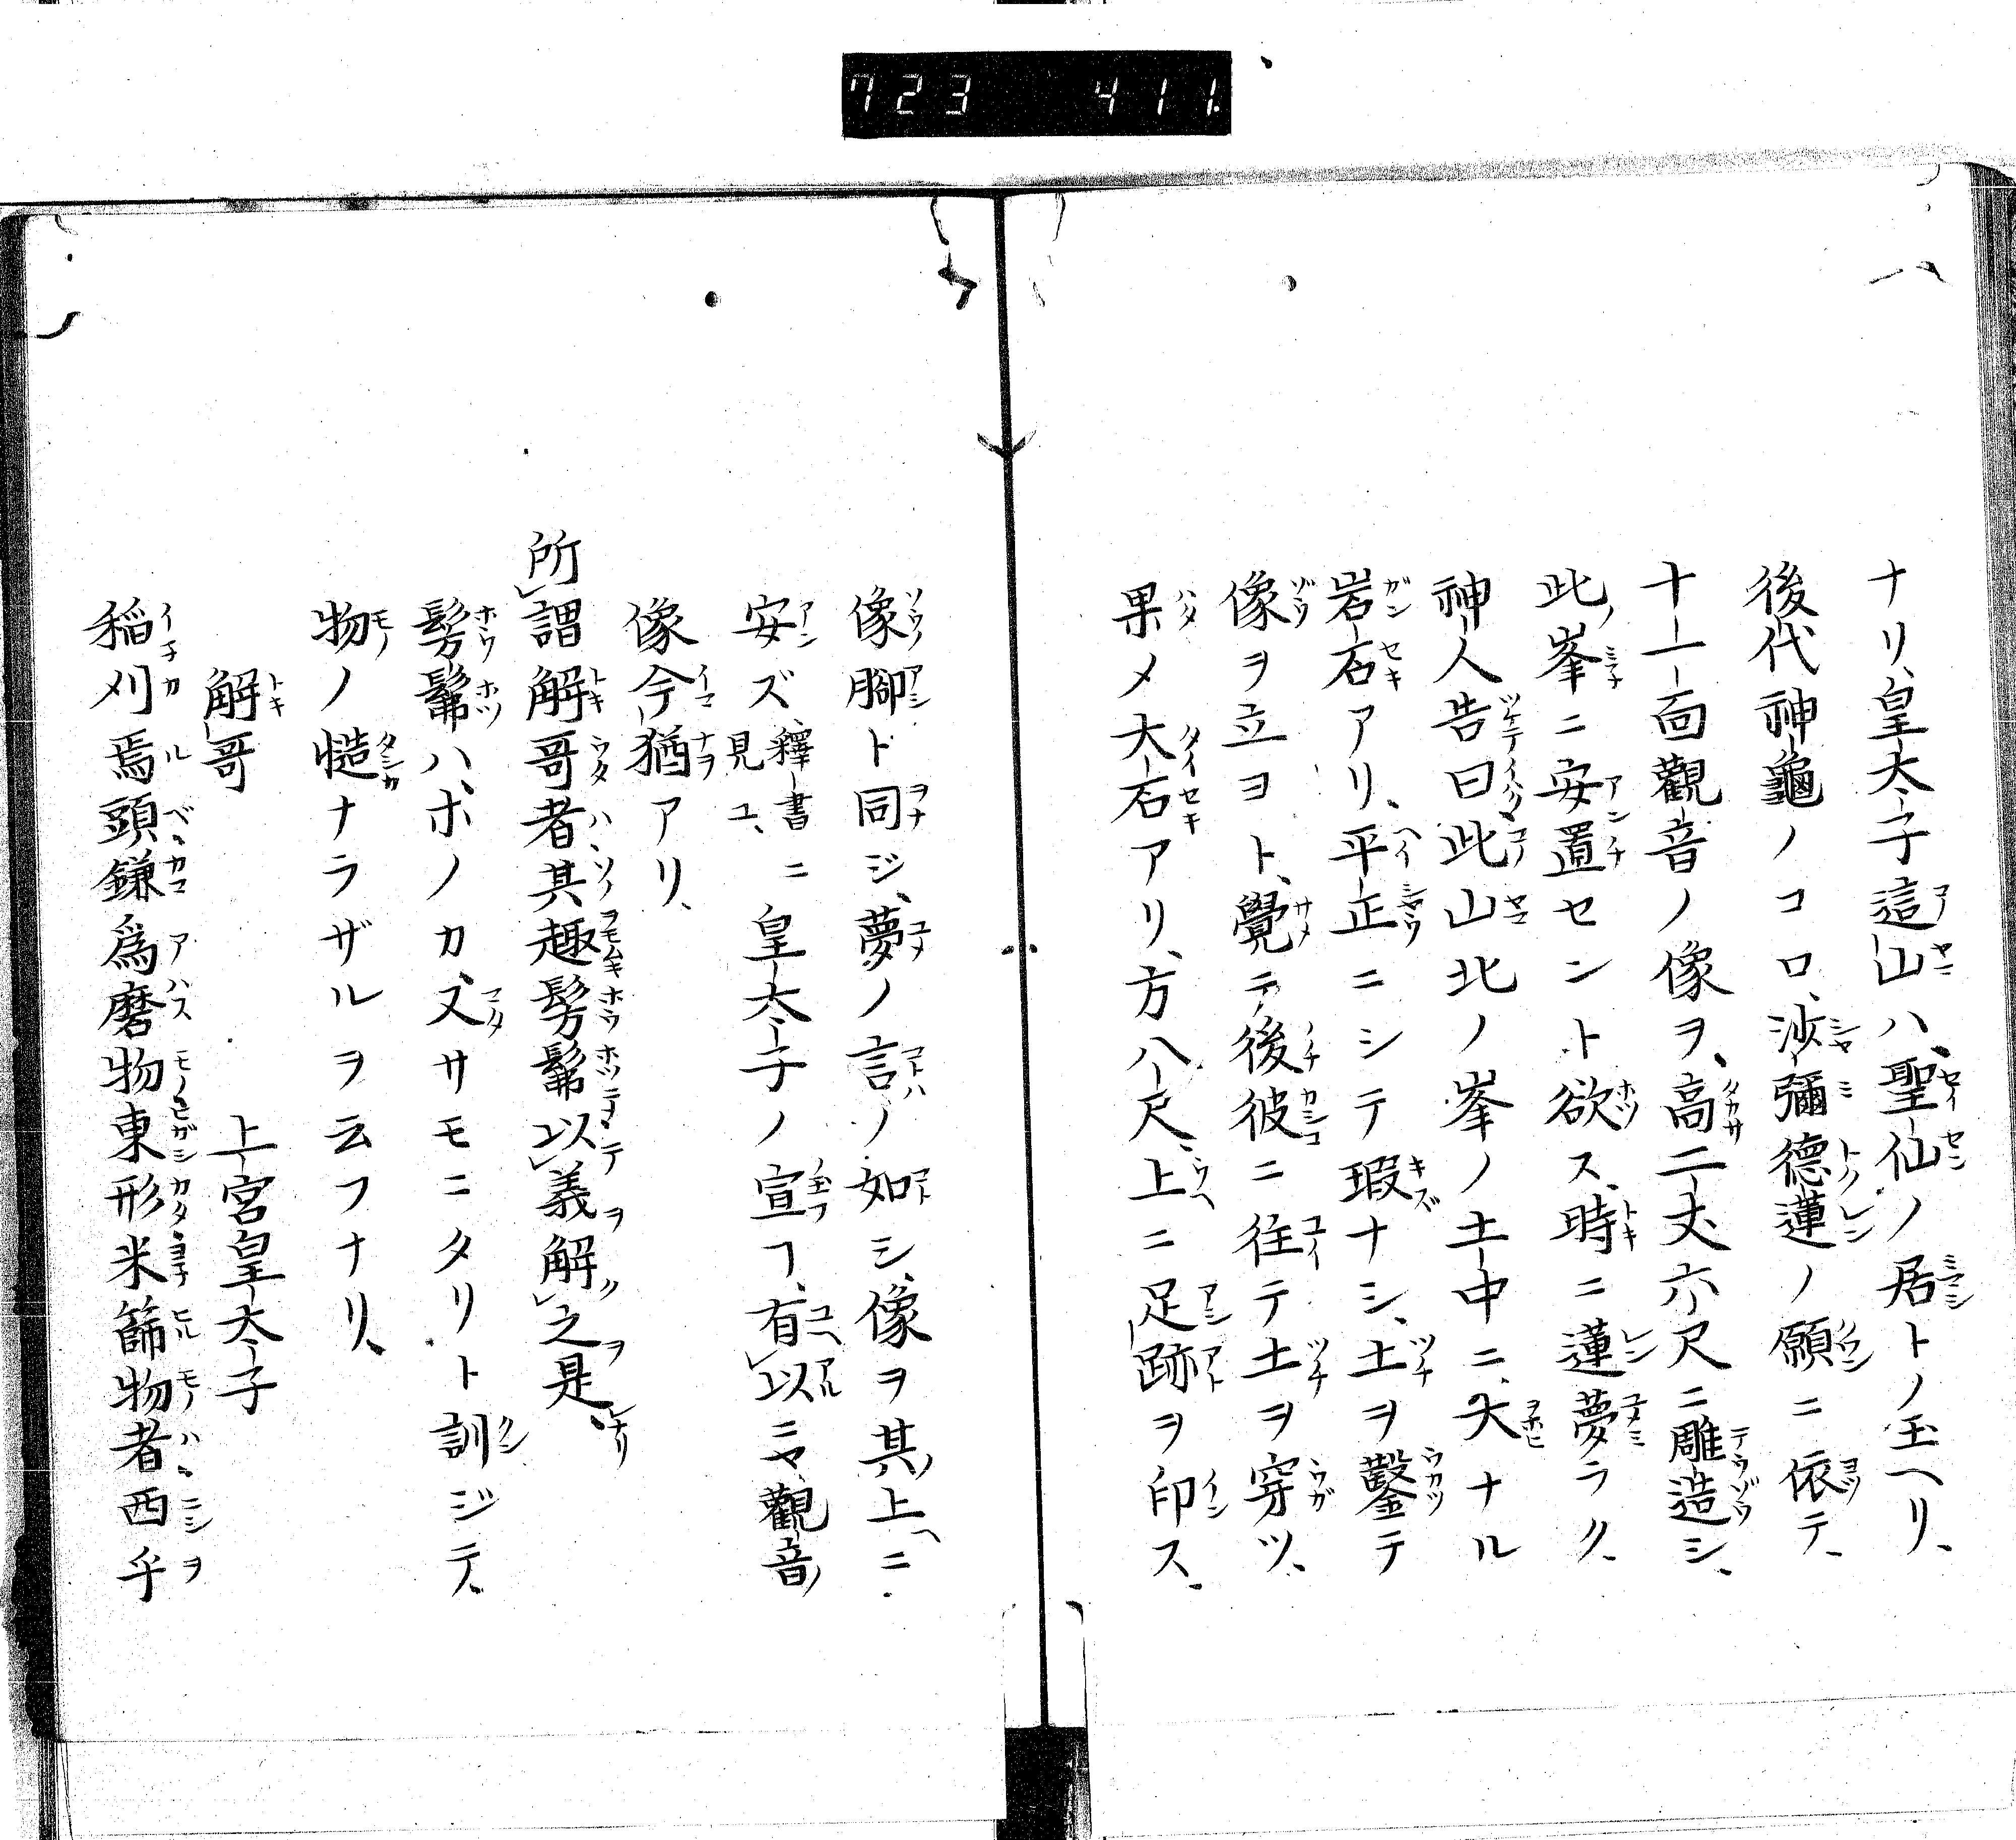 723 411.
ナリ、皇太子這山ハ、聖仙ノ居トノ玉ヘリ、
後代神龜ノコロ、沙彌德蓮ノ願ニ依テ、
十一面觀音ノ像ヲ、高二丈六尺ニ雕造シ、
此ノ峯ニ安置セント欲ス、時ニ蓮夢ラク、
神人告曰此山北ノ峯ノ土中ニ、大ナル
岩石アリ、平正ニシテ瑕ナシ、土ヲ鑿テ
像ヲ立ヨト、覺テ後彼ニ往テ土ヲ穿ツ、
果メ大石アリ、方八尺、上ニ足跡ヲ印ス、
像腳ト同ジ、夢ノ言ノ如シ、像ヲ其上ニ
安ズ釋書ニ見ユ、皇太子ノ宣フヿ、有以ミヤ觀音ノ
像今猶アリ、
所謂解哥者其趣髣髴以義解之是
髣髴ハ、ホノカ、又サモニタリト訓ジテ、
物ノ慥ナラザルヲ云フナリ、
解哥 上宮皇太子
稲刈焉頭鎌爲磨物東形米篩物者西乎